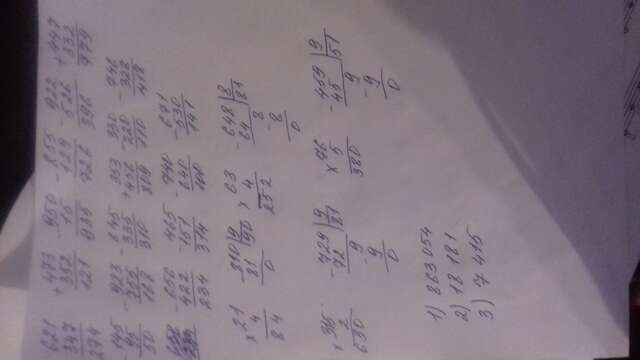 621 +473 -950 -855 -922 +447
347 352 15 129 526 332
274 121 935 726 396 779
-145 -923 -645 +353 -330 -746
95 755 335 456 220 328
50 168 310 809 110 418
-656 -465 -740 -671
422 151 640 530
234 314 100 141
×21 -810|9 ×63 -648|8
4 81 90 4 64 81
84 0 252 8
-8
0
×315 -729|9 ×76 -459|9
2 72 81 5 45 51
630 9 380 9
-9 -9
0 0
1) 863054
2) 18 181
3) 7 415